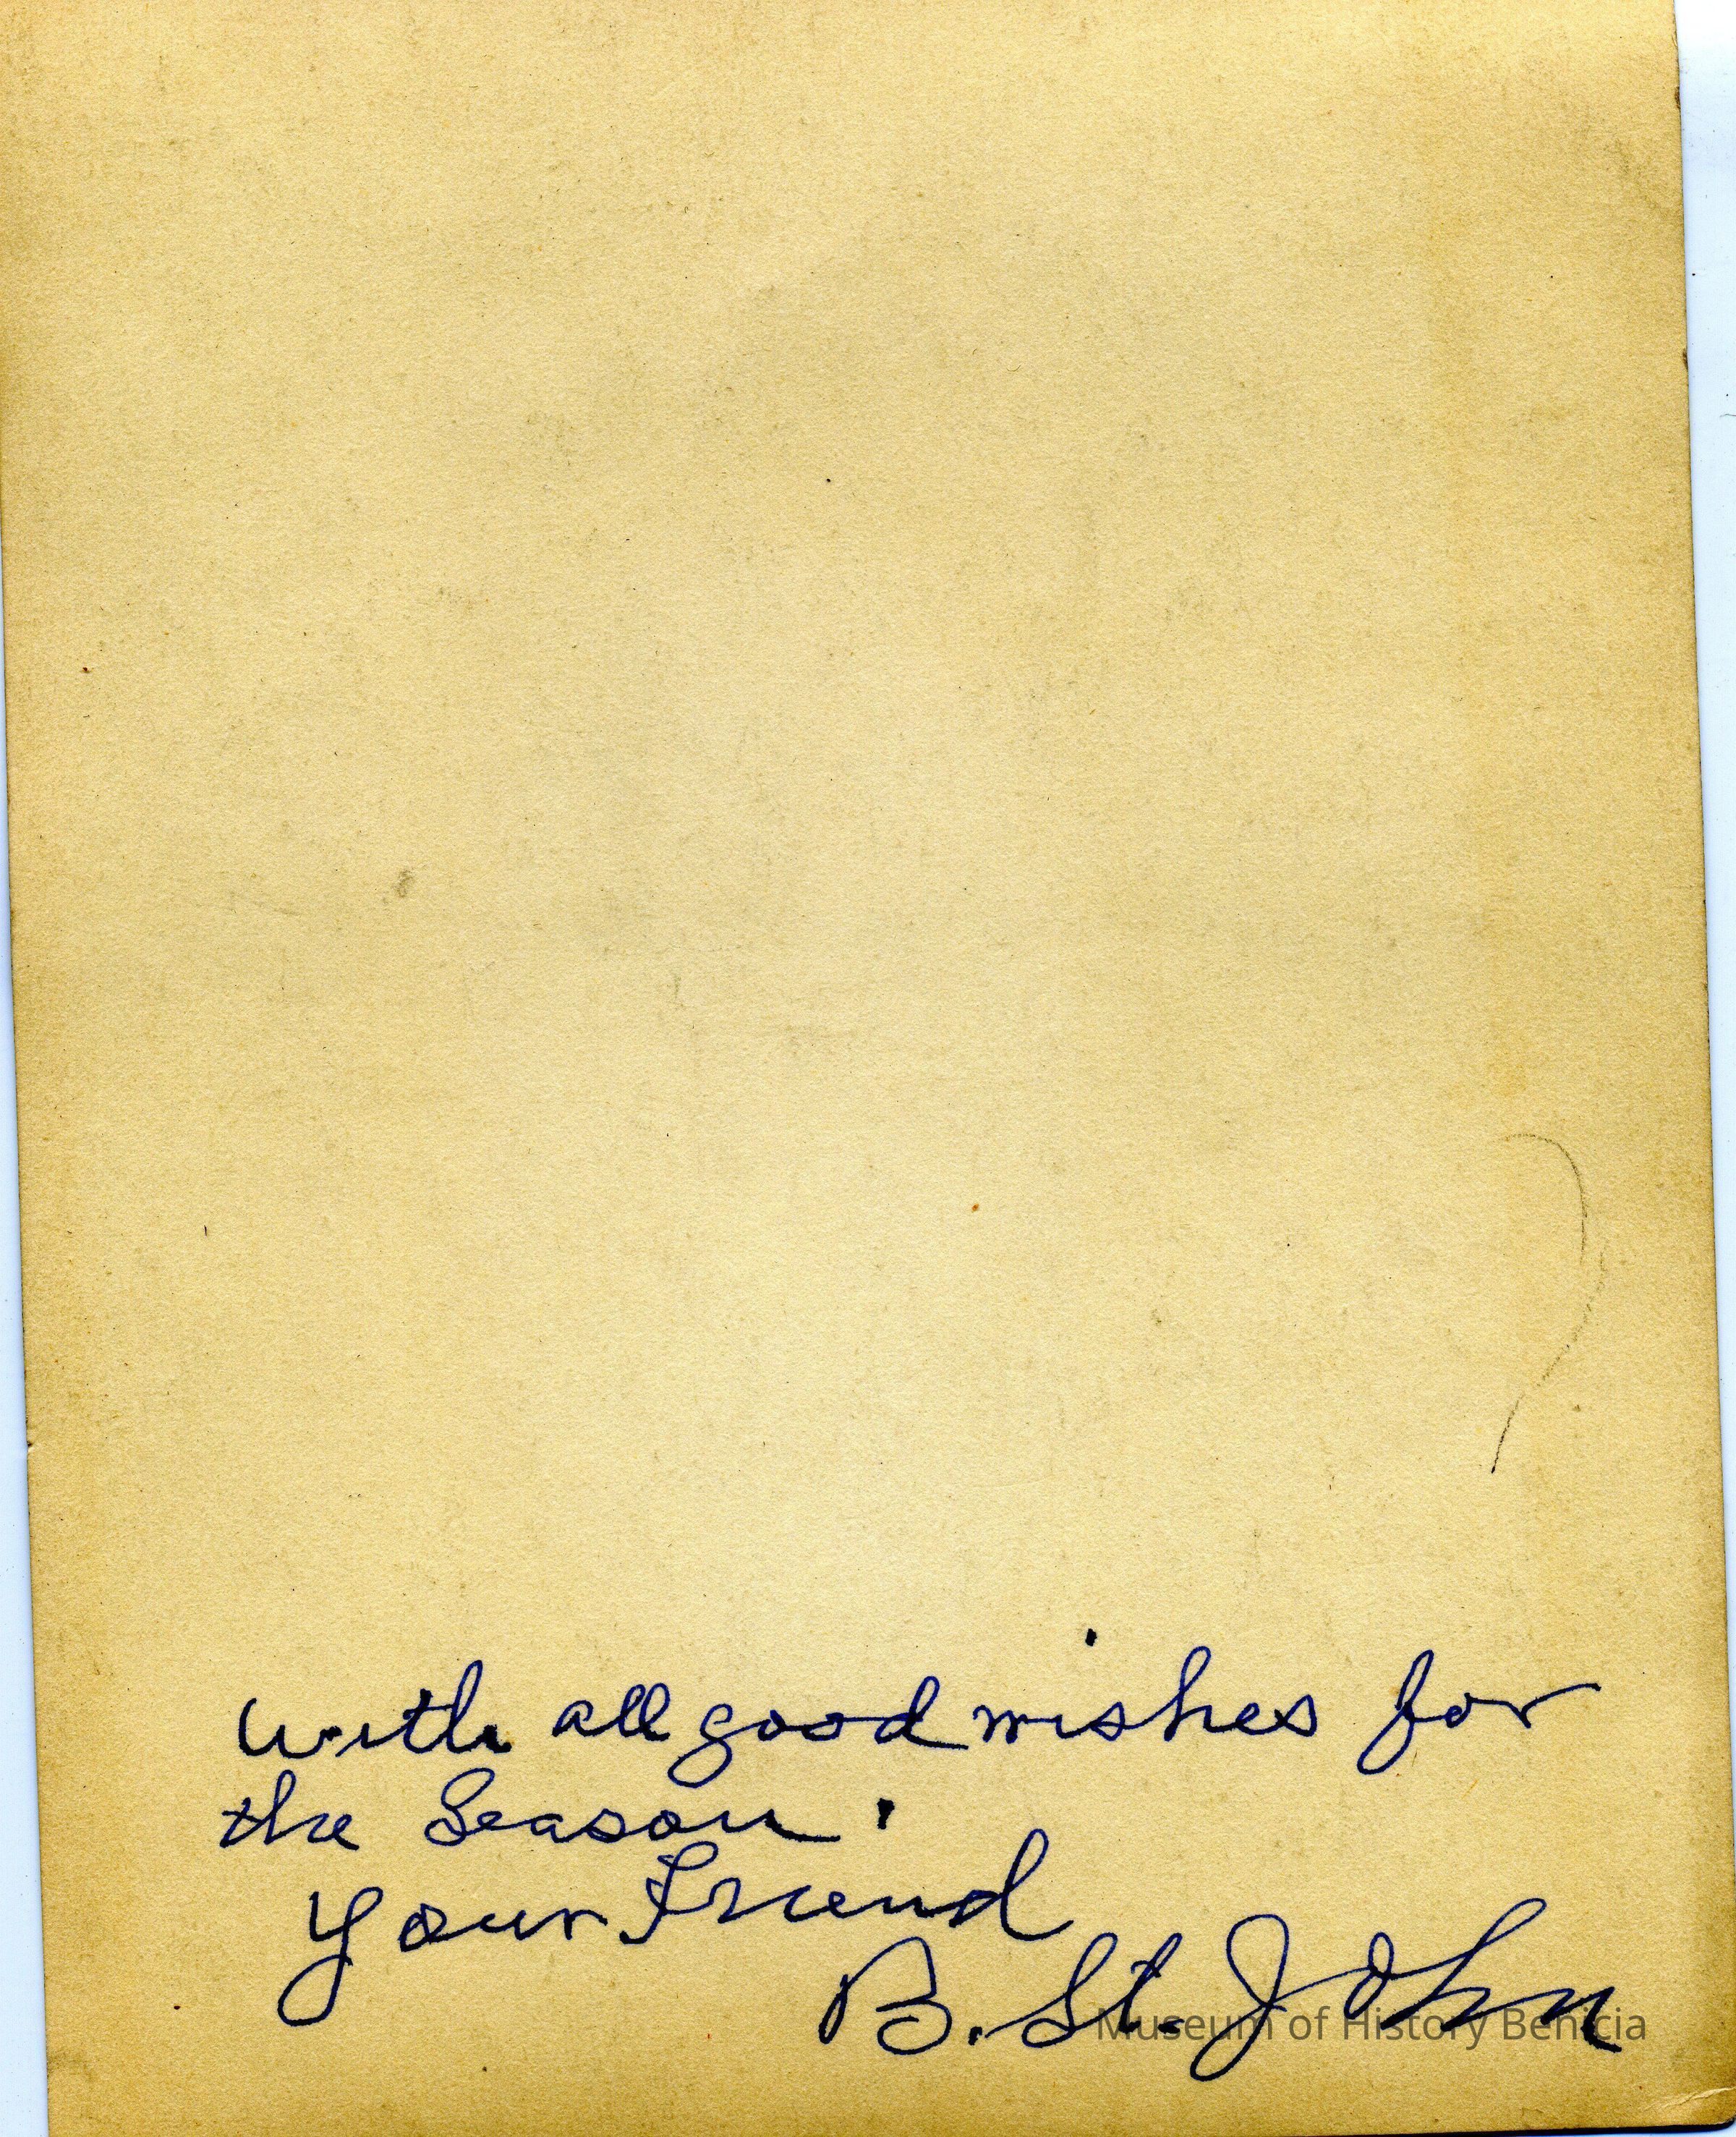 with all good wishes for
the Season.
Your Friend
B. St. John
Museum of History Benicia